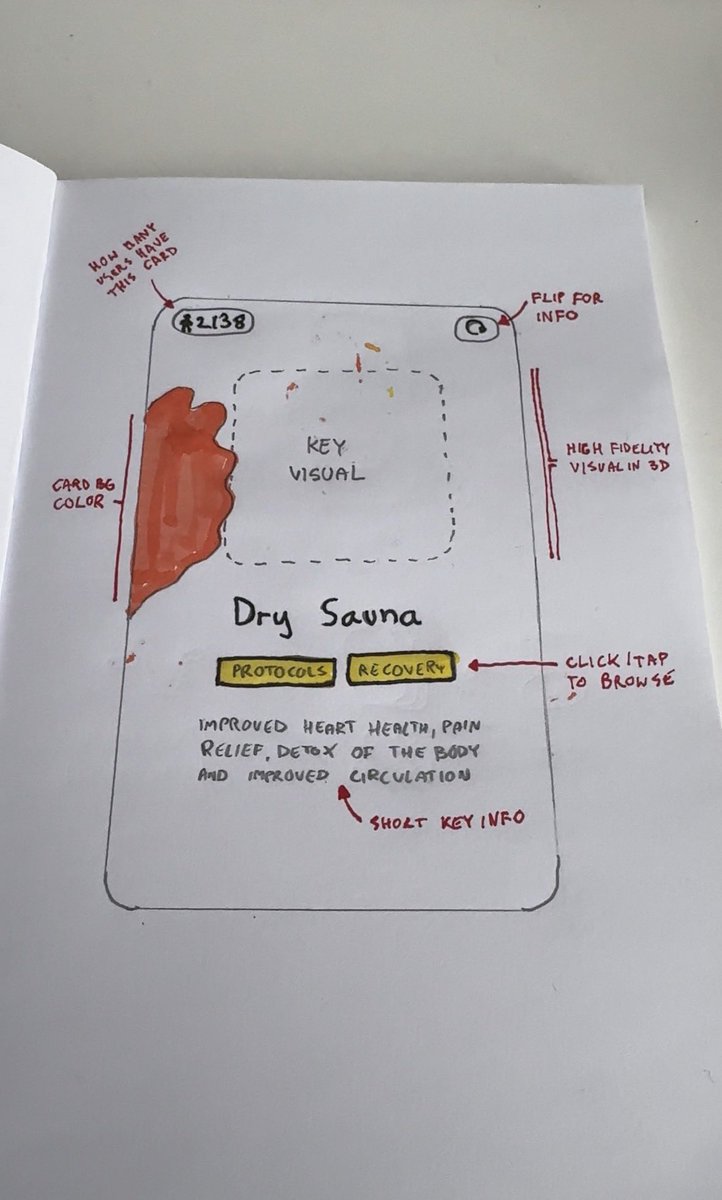 HOW MANY
USERS HAVE
THIS CARD
2138
FLIP FOR
INFO
KEY
VISUAL
HIGH FIDELITY
VISUAL IN 3D
CARD BG
COLOR
Dry Sauna
PROTOCOLS
RECOVERY
CLICK/TAP
TO BROWSE
IMPROVED HEART HEALTH, PAIN
RELIEF, DETOX OF THE BODY
AND IMPROVED CIRCULATION
SHORT KEY INFO